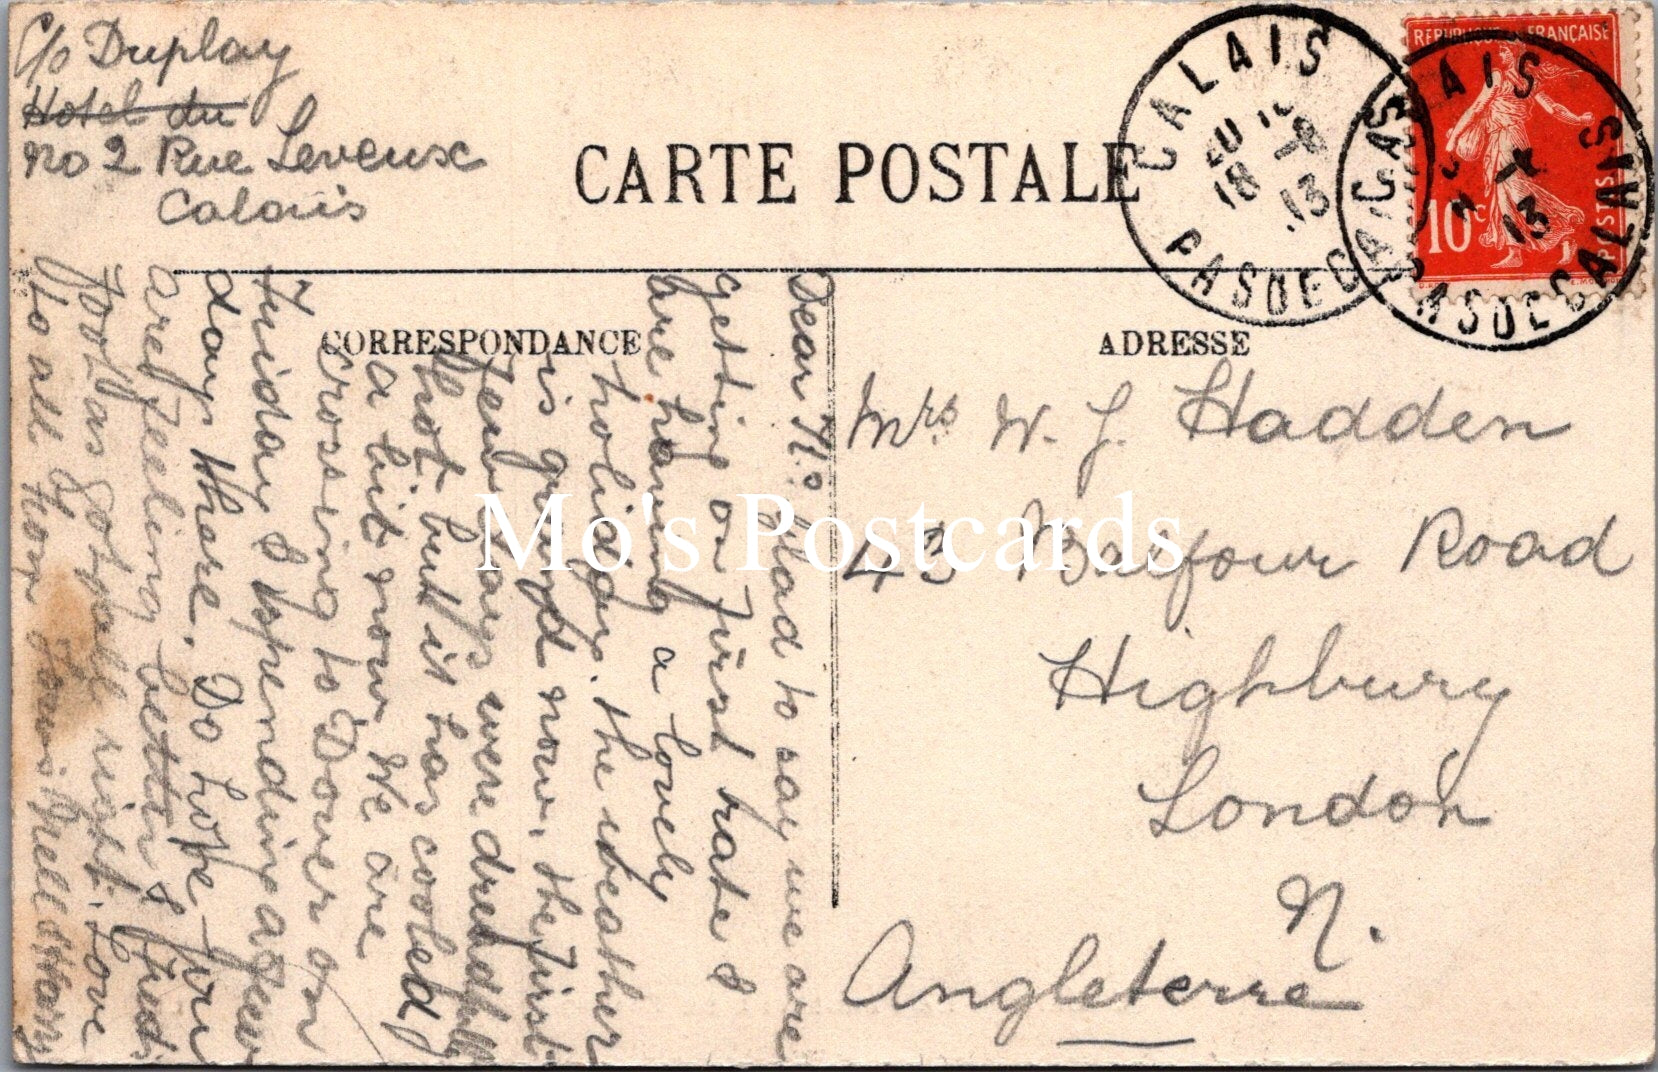 C/o Duplay
Hotel du
no 2 Rue Leveux
Calais
CARTE POSTALE
CALAIS
18
10
-8
13
PAS DE CALAIS
CALAIS
-8
13
PAS DE CALAIS
REPUBLIQUE FRANÇAISE
10c
POSTES
CORRESPONDANCE
ADRESSE
Dear Glad to say we are
getting on first rate &
are having a lovely
holiday. the weather
is grand now, the first
few days were dreadfull
hot but it has cooled
a bit now We are
crossing to Dover on
Friday & spending a few
days there. Do hope you
are feeling better & Fred:
foot has got quite right. Love
to all from Nell & Harry
Mrs W. J. Hadden
43 Balfour Road
Highbury
London
N.
Angleterre
Mo's Postcards